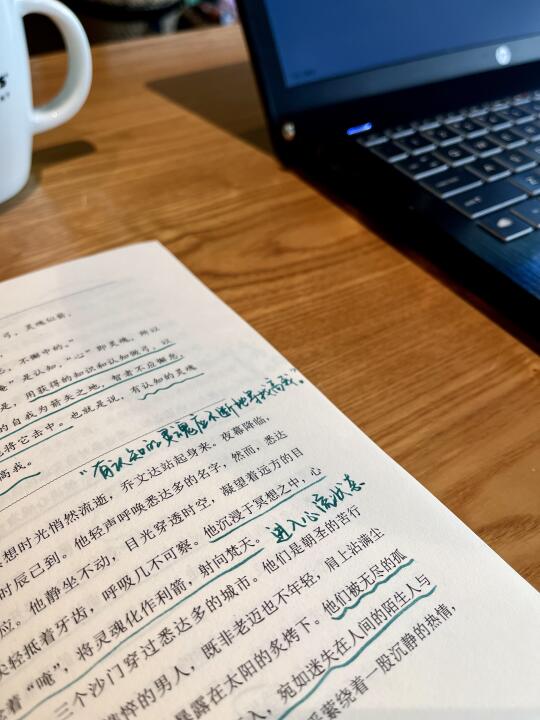 弓,灵魂似箭,
心,不懈中的。”
是认知,“心”即灵魂,所以
是,用获得的知识和认知做弓,让
的自我为箭矢之地,智者不应懈怠,
将它击中。也就是说,有认知的灵魂
高我。
“有认知的灵魂应不断地寻找高我”。
想时光悄然流逝,乔文达站起身来。夜幕降临,
时辰已到。他轻声呼唤悉达多的名字,然而,悉达
应。他静坐不动,目光穿透时空,凝望着远方的目
尖轻抵着牙齿,呼吸几不可察。他沉浸于冥想之中,心
着“唵”,将灵魂化作利箭,射向梵天。
进入心流状态
三个沙门穿过悉达多的城市。他们是朝圣的苦行
憔悴的男人,既非老迈也不年轻,肩上沾满尘
暴露在太阳的炙烤下。他们被无尽的孤
入,宛如迷失在人间的陌生人与
萦绕着一股沉静的热情,